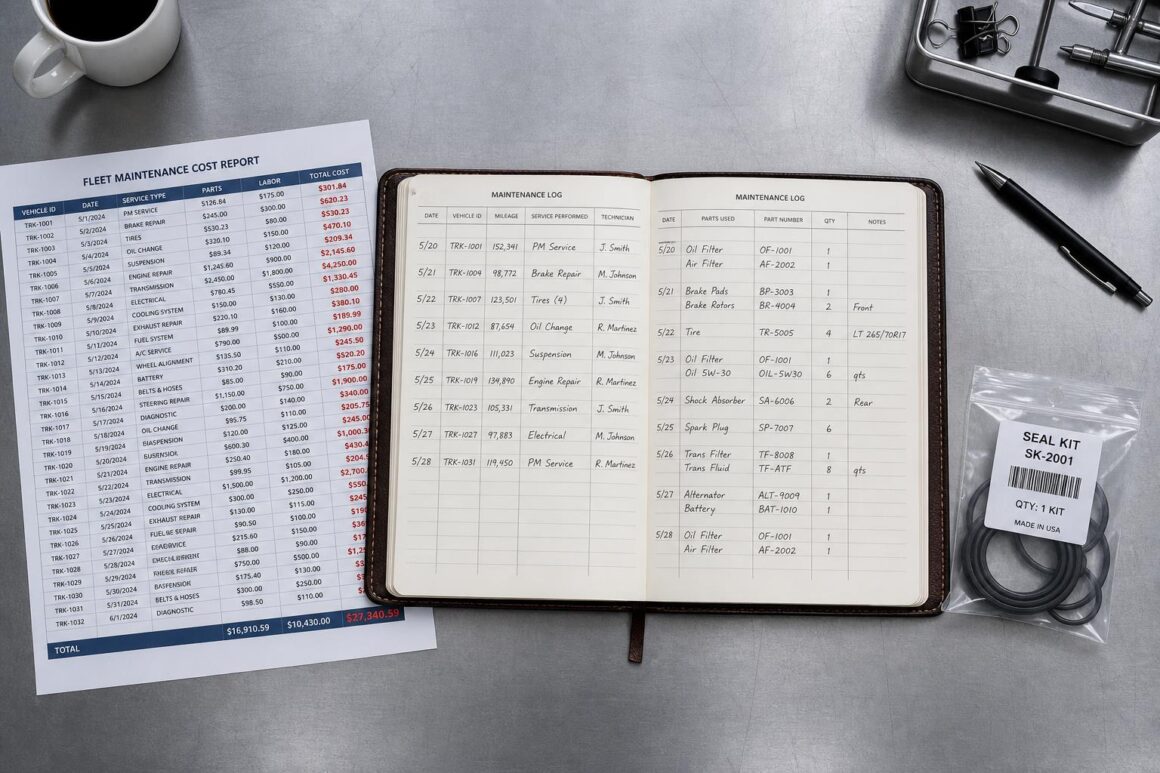 FLEET MAINTENANCE COST REPORT
VEHICLE ID DATE SERVICE TYPE PARTS LABOR TOTAL COST
TRK-1001 5/1/2024 PM SERVICE $126.84 $175.00 $301.84
TRK-1002 5/2/2024 BRAKE REPAIR $245.00 $300.00 $620.23
TRK-1003 5/3/2024 TIRES $530.23 $80.00 $530.23
TRK-1004 5/4/2024 OIL CHANGE $320.10 $150.00 $470.10
TRK-1005 5/5/2024 SUSPENSION $89.34 $120.00 $209.34
TRK-1006 5/6/2024 ENGINE REPAIR $1,245.60 $900.00 $2,145.60
TRK-1007 5/7/2024 TRANSMISSION $2,450.00 $1,800.00 $4,250.00
TRK-1008 5/8/2024 ELECTRICAL $780.45 $550.00 $1,330.45
TRK-1009 5/9/2024 COOLING SYSTEM $150.00 $130.00 $280.00
TRK-1010 5/10/2024 EXHAUST REPAIR $220.10 $160.00 $380.10
TRK-1011 5/11/2024 FUEL SYSTEM $89.99 $100.00 $189.99
TRK-1012 5/12/2024 A/C SERVICE $790.00 $500.00 $1,290.00
TRK-1013 5/13/2024 WHEEL ALIGNMENT $135.50 $110.00 $245.50
TRK-1014 5/14/2024 BATTERY $310.20 $210.00 $520.20
TRK-1015 5/15/2024 BELTS & HOSES $85.00 $90.00 $175.00
TRK-1016 5/16/2024 STEERING REPAIR $1,150.00 $750.00 $1,900.00
TRK-1017 5/17/2024 DIAGNOSTIC $200.00 $140.00 $340.00
TRK-1018 5/18/2024 OIL CHANGE $95.75 $110.00 $205.75
TRK-1019 5/19/2024 $120.00 $125.00 $245.00
TRK-1020 5/20/2024 $600.30 $400.00
TRK-1021 5/21/2024 ENGINE REPAIR $250.40 $180.00
TRK-1022 5/22/2024 TRANSMISSION $99.95 $105.00
TRK-1023 5/23/2024 ELECTRICAL $1,500.00 $1,200.00
TRK-1024 5/24/2024 COOLING SYSTEM $300.00 $250.00
TRK-1025 5/25/2024 EXHAUST REPAIR $130.00 $115.00
TRK-1026 5/26/2024 $90.50 $100.00
TRK-1027 5/27/2024 $215.60 $150.00
TRK-1028 5/28/2024 $88.00 $90.00
TRK-1029 5/29/2024 $750.00 $500.00
TRK-1030 5/30/2024 $175.40 $130.00
TRK-1031 5/31/2024 BELTS & HOSES $300.00 $250.00
TRK-1032 6/1/2024 DIAGNOSTIC $98.50 $110.00
TOTAL $16,910.59 $10,430.00 $27,340.59
MAINTENANCE LOG
DATE VEHICLE ID MILEAGE SERVICE PERFORMED TECHNICIAN
5/20 TRK-1001 152,341 PM Service J. Smith
5/21 TRK-1004 98,772 Brake Repair M. Johnson
5/22 TRK-1007 123,501 Tires (4) J. Smith
5/23 TRK-1012 87,654 Oil Change R. Martinez
5/24 TRK-1016 111,023 Suspension M. Johnson
5/25 TRK-1019 134,890 Engine Repair R. Martinez
5/26 TRK-1023 105,331 Transmission J. Smith
5/27 TRK-1027 97,883 Electrical M. Johnson
5/28 TRK-1031 119,450 PM Service R. Martinez
MAINTENANCE LOG
DATE PARTS USED PART NUMBER QTY NOTES
5/20 Oil Filter OF-1001 1
Air Filter AF-2002 1
5/21 Brake Pads BP-3003 1
Brake Rotors BR-4004 2 Front
5/22 Tire TR-5005 4 LT 265/70R17
5/23 Oil Filter OF-1001 1
Oil 5W-30 OIL-5W30 6 qts
5/24 Shock Absorber SA-6006 2 Rear
5/25 Spark Plug SP-7007 6
5/26 Trans Filter TF-8008 1
Trans Fluid TF-ATF 8 qts
5/27 Alternator ALT-9009 1
Battery BAT-1010 1
5/28 Oil Filter OF-1001 1
Air Filter AF-2002 1
SEAL KIT
SK-2001
QTY: 1 KIT
MADE IN USA